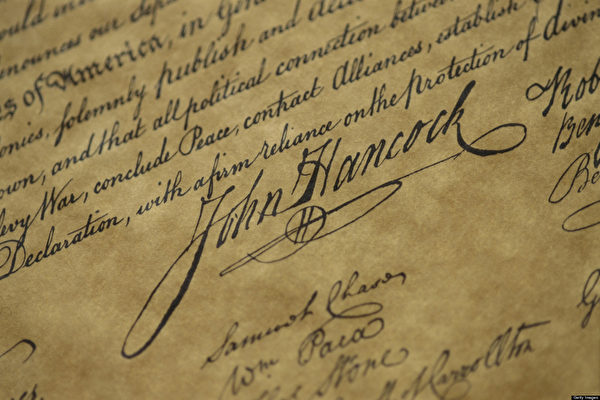 ould in
nounces our
s of America, in Gen
onies, solemnly publish and decl
own, and that all political connection between
levy War, conclude Peace, contract Alliances, establish
Declaration, with a firm reliance on the protection of divin
John Hancock
Rob
Ben
Be
Samuel Chase
Wm Paca
Stone
Carrollton
G
Getty Images